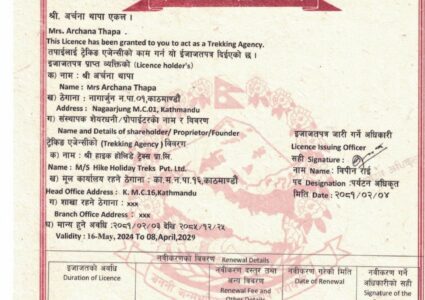 श्री. अर्चना थापा एकल ।
Mrs. Archana Thapa .
This Licence has been granted to you to act as a Trekking Agency.
तपाईलाई ट्रेकिङ एजेन्सीको काम गर्न यो ईजाजतपत्र दिईएको छ ।
इजाजतपत्र प्राप्त व्यक्तिको (Licence holder's)
क) नाम : श्री अर्चना थापा
Name : Mrs Archana Thapa
ख) ठेगाना : नागार्जुन न.पा.०१,काठमाण्डौं
Address : Nagaarjung M.C.01, Kathmandu
ग) संस्थापक शेयरधनी/प्रोपाईटरको नाम र विवरण
Name and Details of shareholder/ Proprietor/Founder
ट्रेकिङ एजेन्सीको (Trekking Agency) विवरण
क) नाम : श्री हाइक होलिडे ट्रेक्स प्रा.लि.
Name : M/S Hike Holiday Treks Pvt. Ltd.
ख) मूल कार्यालय रहने ठेगाना : का.म.न.पा.१६,काठमाण्डौं
Head Office Address : K. M.C.16,Kathmandu
ग) शाखा रहने ठेगाना : xxx
Branch Office Address : xxx
घ) मान्य हुने अवधि :२०८१/०२/०३ देखि २०८५/१२/२५
Validity : 16-May, 2024 To 08,April,2029
इजाजतपत्र जारी गर्ने अधिकारी
Licence Issuing Officer
सही Signature :
नाम Name: विपीन राई
पद Designation :पर्यटन अधिकृत
मिति Date : २०८१/०२/०४
नवीकरणको विवरण Renewal Details
इजाजतको अवधि
Duration of Licence
नवीकरण दस्तुर तथा
अन्य विवरण
Renewal Fee and
Other Details
नवीकरण गरेको मिति
Date of Renewal
नवीकरण गर्ने
अधिकारीको सही
Signature of the